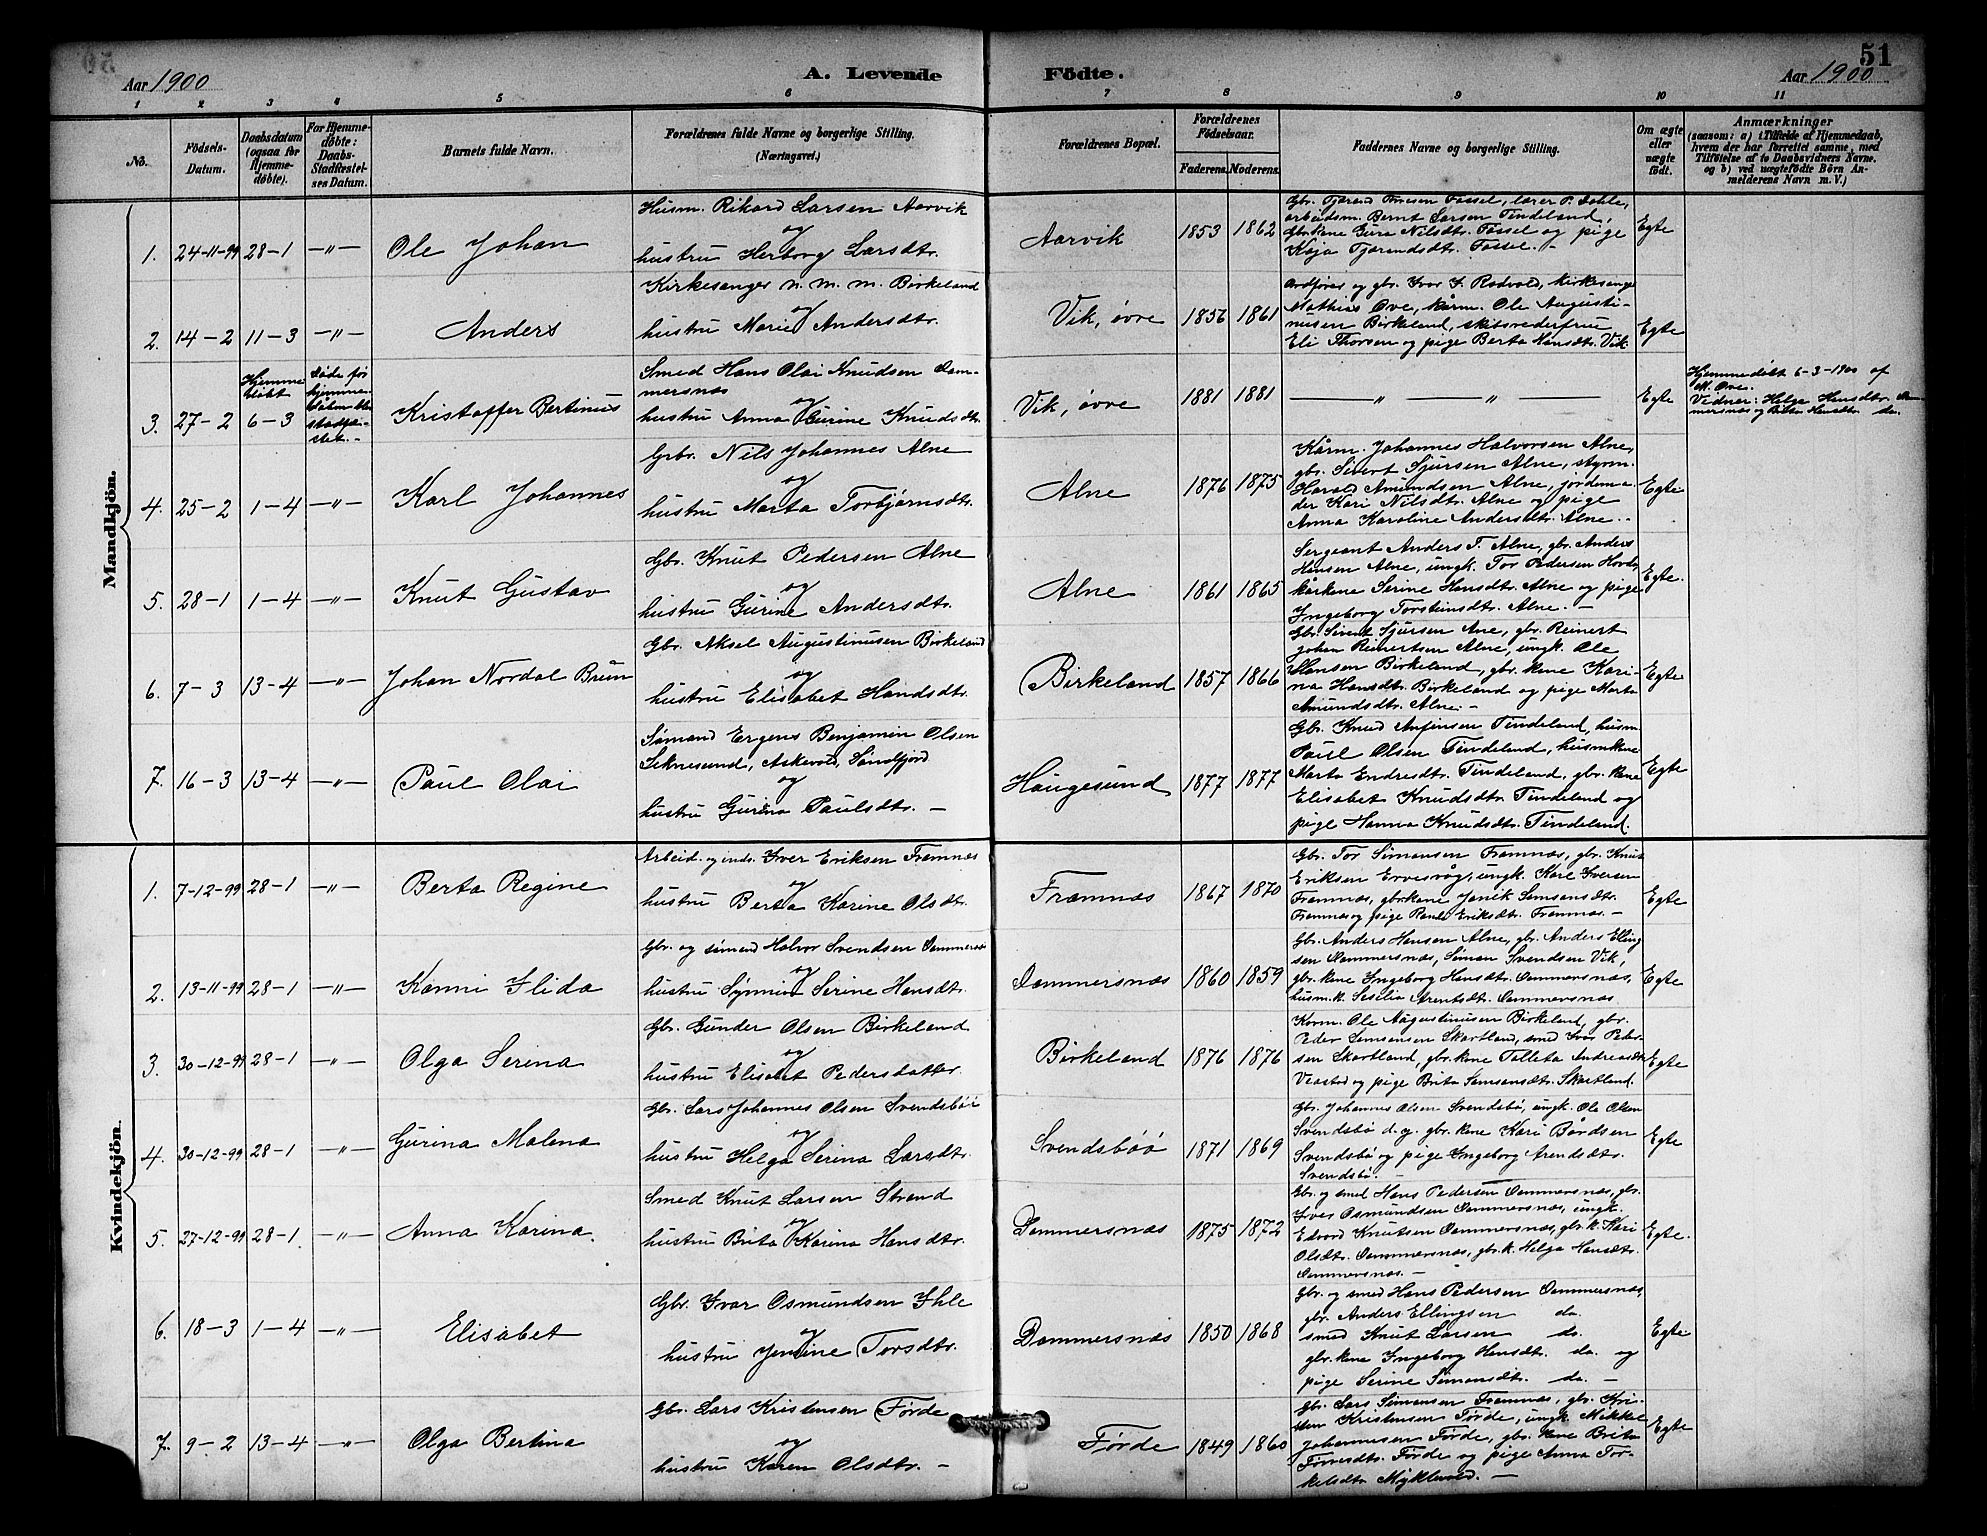 51
Aar 1900
A. Levende Födte.
Aar 1900
1 2 3 4 5 6 7 8 9 10 11
No.
Födsels-Datum.
Daabsdatum (ogsaa for Hjemme-döbte).
For Hjemme-döbte: Daabs-Stadfæstel-ses Datum.
Barnets fulde Navn.
Forældrenes fulde Navne og borgerlige Stilling.
(Næringsvei.)
Forældrenes Bopæl.
Forældrenes Födselsaar.
Faderens. Moderens.
Faddernes Navne og borgerlige Stilling.
Om ægte eller uægte födt.
Anmærkninger
(saasom: a) i Tilfælde af Hjemmedaab,
hvem der har forrettet samme, med
Tilföielse af to Daabsvidners Navne.
og b) ved uægtefödte Börn An-
melderens Navn m. V.)
Mandkjön.
1. 24-11-99 28-1 —"— Ole Johan
Husm. Rikard Larsen Aarvik
og
hustru Herborg Larsdtr.
Aarvik 1853 1862
arbeidsm. Bernt Larsen Tindeland,
gbr.kene Gura Nilsdtr. Fossel og pige
Kaja Tjerandsdtr. Fossel. –
Egte
2. 14-2 11-3 —"— Anders
Kirkesanger n. m. m. Birkeland
og
hustru Marie Andersdtr.
Vik, övre 1856 1861
Mathias Ove, kårm. Ole Augusti-
nusen Birkeland, skitsrederfrue
Eli Thorsen og pige Berta Hansdtr. Vik
Egte
3. 27-2 Hjemme döbt 6-3
Kristoffer Bertinius
Smed Hans Olai Knudsen Dom-
mersnæs
og
hustru Anna Gurine Knudsdtr.
Vik, övre 1881 1881
— " — " —
Egte
Hjemmedöbt 6-3-1900 af
M. Ove.
Vidner: Helga Hansdtr. Dom-
mersnæs og Brita Hansdtr. do.
4. 25-2 1-4 —"— Karl Johannes
Gbr. Nils Johannes Alne
og
hustru Marta Torbjørnsdtr.
Alne 1876 1875
Kårm. Johannes Halvorsen Alne,
gbr. Sivert Sjursen Alne, styrm.
Harald Amundsen Alne, jordemo-
der Kari Nilsdtr. Alne og pige
Anna Karoline Andersdtr. Alne. –
Egte
5. 28-1 1-4 —"— Knut Gustav
Gbr. Knut Pedersen Alne
og
hustru Gurine Andersdtr.
Alne 1861 1865
Sergeant Anders T. Alne, gbr. Anders
Hansen Alne, ungk. Tor Pedersen Hovda,
kårkene Serine Hansdtr. Alne og pige
Ingeborg Torsteinsdtr. Alne. –
Egte.
6. 7-3 13-4 —"— Johan Nordal Brun
Gbr. Aksel Augustinusen Birkeland
og
hustru Elisabet Handsdtr.
Birkeland 1857 1866
Gbr. Sivert Sjursen Ane, gbr. Reinert
Johan Reinertsen Alne, ungk. Ole
Hansen Birkeland, gbr. kene Kari-
na Hansdtr. Birkeland og pige Marta
Amundsdtr. Alne. –
Egte
7. 16-3 13-4 —"— Paul Olai
Sømand Ergens Benjamin Olsen
Seknesund, Askevold, Søndfjord
og
hustru Gurina Paulsdtr. –
Haugesund 1877 1877
Gbr. Knud Anfinsen Tindeland, husm.
Paul Olsen Tindeland, husmkene
Marta Endresdtr. Tindeland, gbr. kene
Elisabet Knudsdtr. Tindeland og
pige Hanna Knudsdtr. Tindeland.
Egte
Kvindekjön.
1. 7-12-99 28-1 —"— Berta Regine
Arbeid. og inds. Iver Eriksen Framnæs
og
hustru Berta Karine Olsdtr.
Framnæs 1867 1870
Gbr. Tor Simonsen Framnæs, gbr. Knut
Eriksen Ervesvåg, ungk. Karl Iversen
Framnæs, gbrkene Janik Samsonsdtr.
Framnæs og pige Eriksdtr. Framnæs. –
Egte
2. 13-11-99 28-1 —"— Kanni Ilida
Gbr. og sømand Halvor Svendsen Dommersnæs
og
hustru Synniva Serine Hansdtr.
Dommersnæs 1860 1859
Gbr. Anders Hansen Alne, gbr. Anders Elling
sen Dommersnæs, Simon Svendsen Vik,
gbr. kene Ingeborg Hansdtr. Dommersnæs,
husm.k. Sesilia Arentsdtr. Dommersnæs
Egte
3. 30-12-99 28-1 —"— Olga Serina
Gbr. Gunder Olsen Birkeland
og
hustru Elisabet Pedersdatter.
Birkeland 1876 1876
Korm. Ole Augustinusen Birkeland, gbr.
Peder Samsonsen Skartland, smed Ivar Peder-
sen Skartland, gbr.kene Talleta Andreasdtr.
og pige Brita Samsonsdtr. Skartland.
Egte
4. 30-12-99 28-1 —"— Gurina Malena
Gbr. Lars Johannes Olsen Svendsböö
og
hustru Helga Serina Larsdtr.
Svendsböö 1871 1869
Gbr. Johannes Olsen Svendsbö, ungk. Ole Olsen
Svendsbö d.y. gbr. kene Kari Bårdsen
Svendsbö og pige Ingeborg Arendsdtr.
Svendsbö. –
Egte
5. 27-12-99 28-1 —"— Anna Karina.
Smed Knut Larsen Strand
og
hustru Brita Karina Hansdtr.
Dommersnæs 1875 1872
Gbr. og smed Hans Pedersen Dommersnæs, gbr.
Iver Osmundsen Dommersnæs, ungk.
Edvard Knutsen Dommersnæs, gbr.k. Kari
Olsdtr. Dommersnæs, gbr.k. Helga Hansdtr.
Dommersnæs. –
Egte.
6. 18-3 1-4 —"— Elisabet
Gbr. Ivar Osmundsen Ihle
og
hustru Jenine Torsdtr.
Dommersnæs 1850 1868
Gbr. og smed Hans Pedersen Dommersnæs,
gbr. Anders Ellingsen do.
smed Knut Larsen do.
gbr. kene Ingeborg Hansdtr. do. og
pige Serine Simonsdtr. do. –
Egte
7. 9-2 13-4 —"— Olga Bertina
Gbr. Lars Kristensen Førde
og
hustru Karen Olsdtr. –
Førde 1849 1860
Gbr. Lars Simonsen Framnæs, gbr. Kri-
sten Kristensen Førde, ungk. Mikkel
Johannesen Førde, gbr. kene Brita
Tørresdtr. Førde og pige Anna Tor-
kelsdtr.
Egte